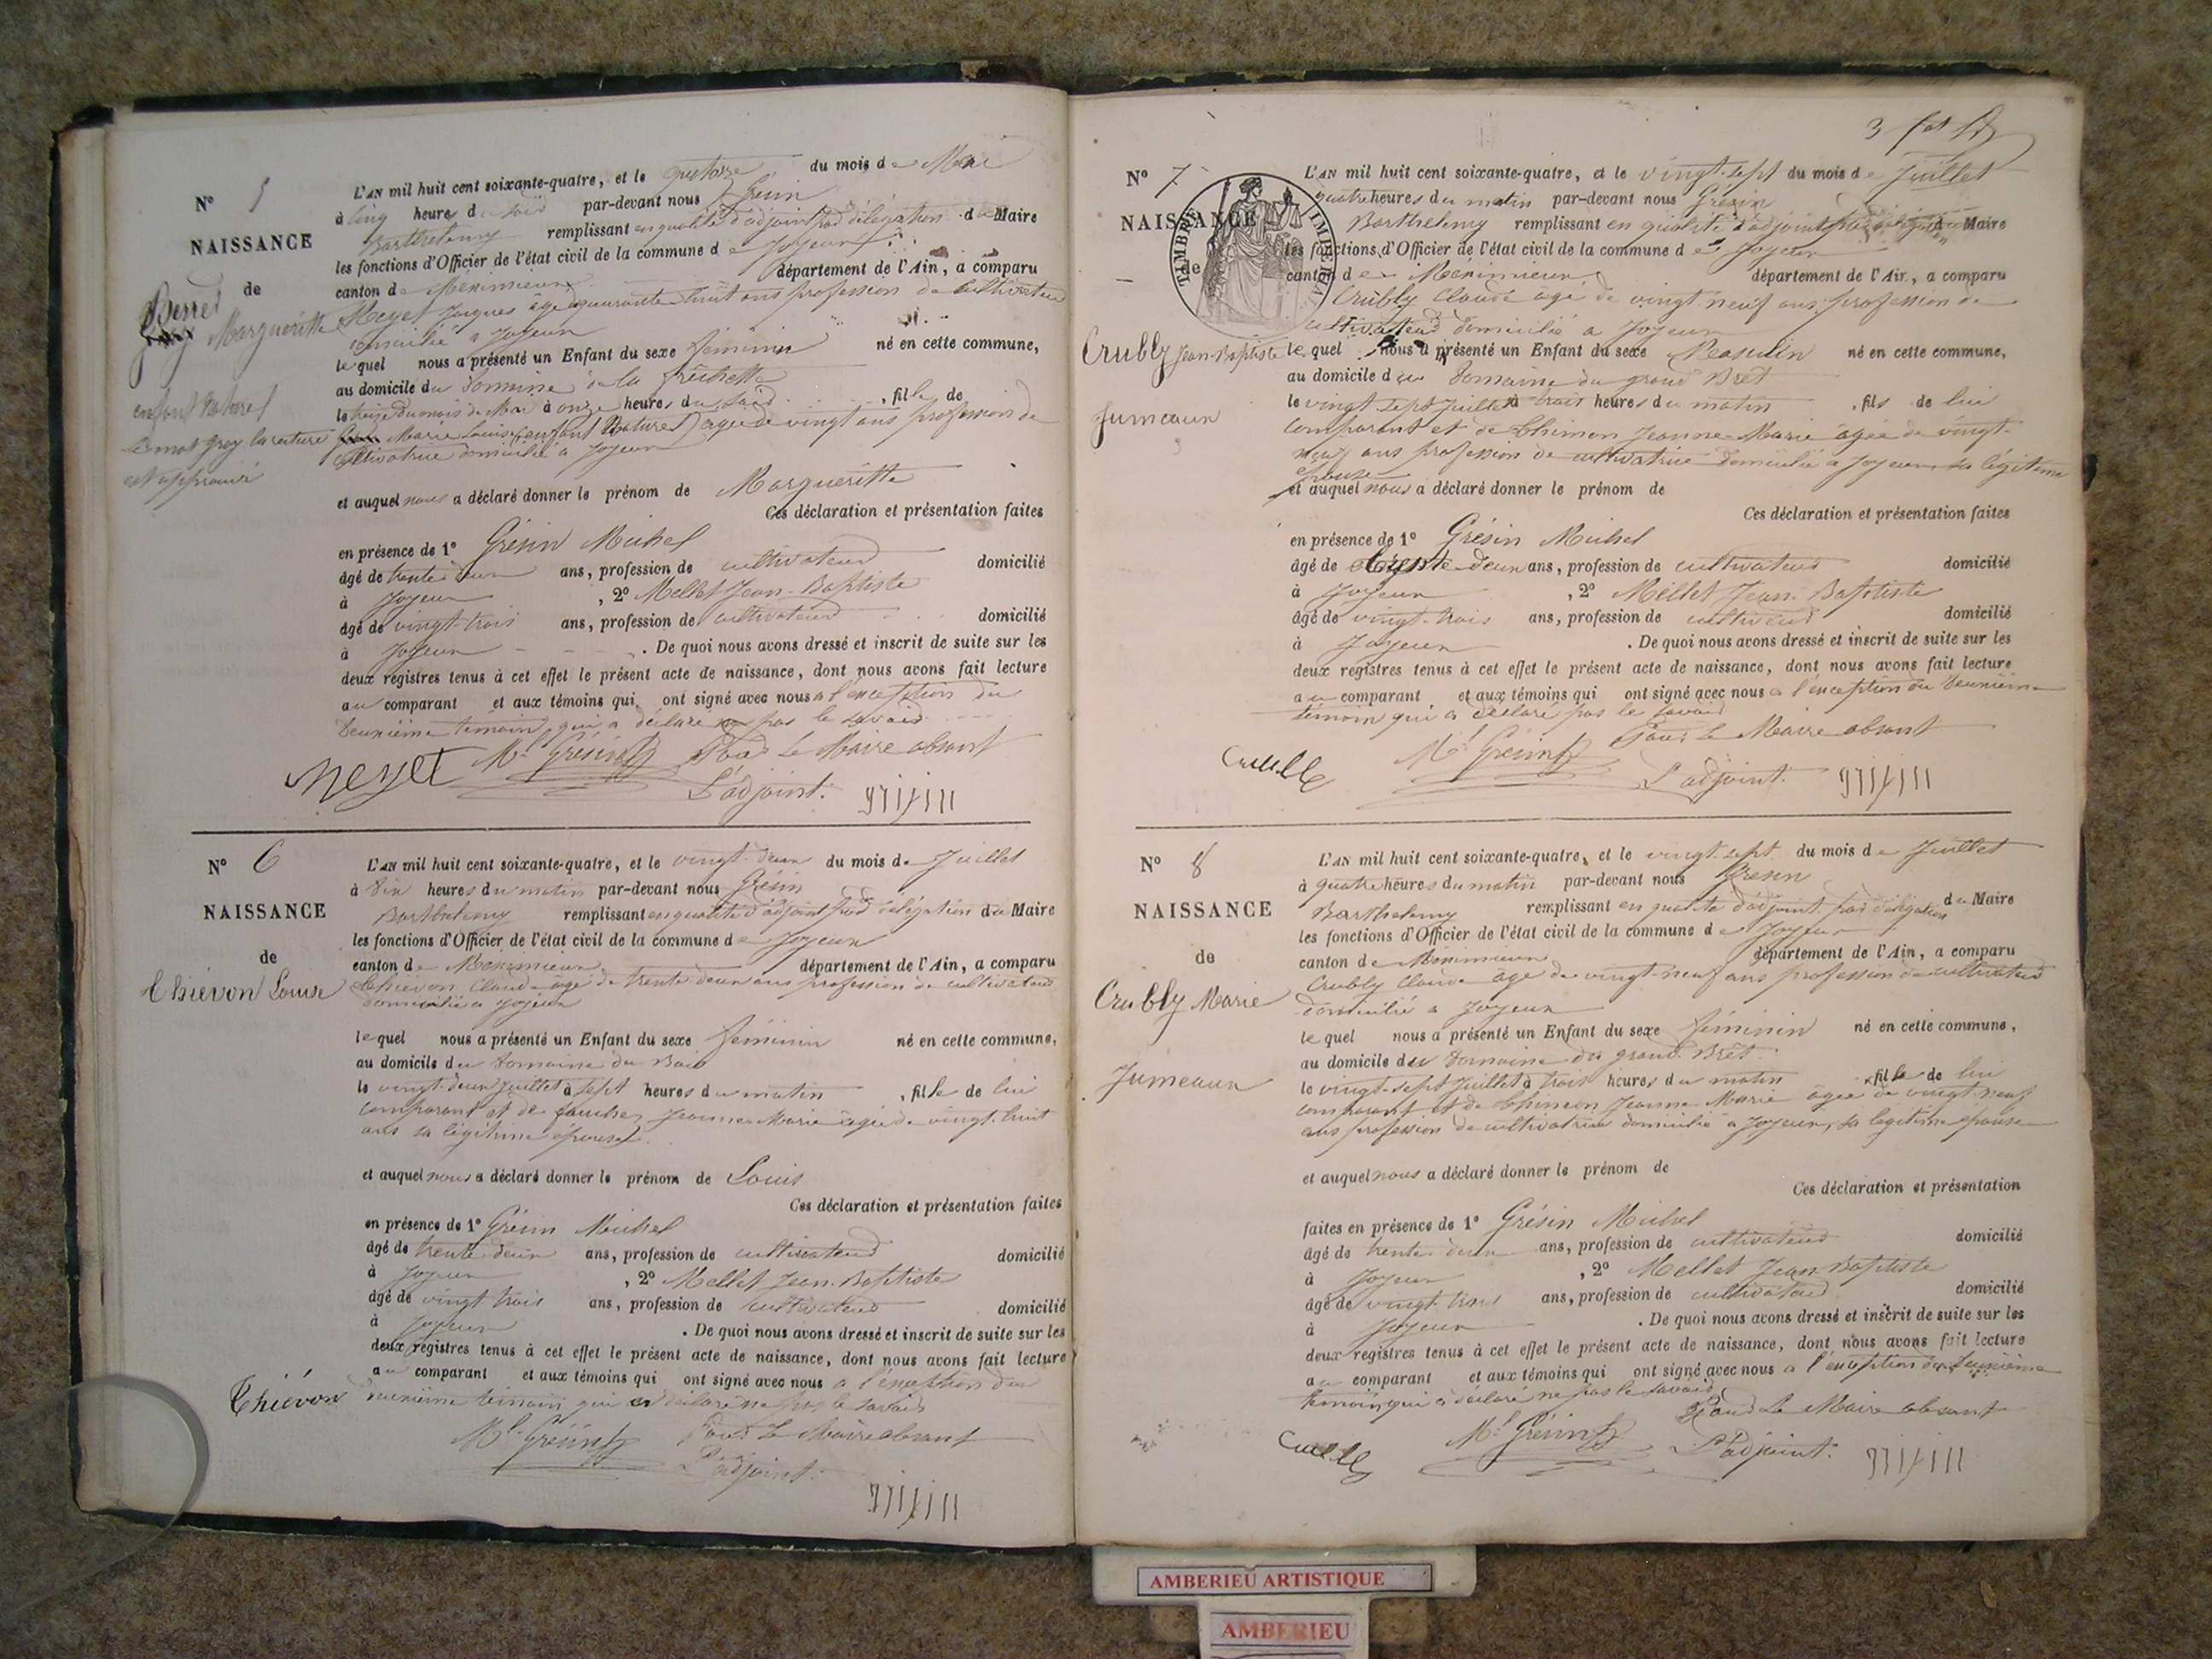 N° 5
NAISSANCE
de
Perret
Marguerite
enfant Naturel
Le mot Grey la rature
est approuvé
L'AN mil huit cent soixante-quatre, et le quatorze du mois de Mai
à cinq heures du soir par-devant nous Grésin
Barthelemy remplissant en qualité d'adjoint par délégation du Maire
les fonctions d'Officier de l'état civil de la commune de Joyeux
canton de Méximieux département de l'Ain, a comparu
Meyet Jacques âgé quarante huit ans profession de cultivateur
domicilié a Joyeux
lequel nous a présenté un Enfant du sexe féminin né en cette commune,
au domicile du domaine de la
le treize du mois de Mai à onze heures du soir, fille de
Marie Louise (enfant Naturel) âgée de vingt ans profession de
cultivatrice domicilié à Joyeux
et auquel nous a déclaré donner le prénom de Margueritte
Ces déclaration et présentation faites
en présence de 1° Grésin Michel
âgé de trente deux ans, profession de cultivateur domicilié
à Joyeux, 2° Mellet Jean-Baptiste
âgé de vingt-trois ans, profession de cultivateur domicilié
à Joyeux. De quoi nous avons dressé et inscrit de suite sur les
deux registres tenus à cet effet le présent acte de naissance, dont nous avons fait lecture
au comparant et aux témoins qui ont signé avec nous a l'exception du
deuxième temoin qui a déclaré ne pas le savoir
Meyet Mel Grésin Pour le Maire absant
L'adjoint.
N° 6
NAISSANCE
de
Thiévon Louise
L'AN mil huit cent soixante-quatre, et le vingt-deux du mois de Juillet
à dix heures du matin par-devant nous Grésin
Barthelemy remplissant en qualité d'adjoint par délégation du Maire
les fonctions d'Officier de l'état civil de la commune de Joyeux
canton de Méximieux département de l'Ain, a comparu
Thiévon Claude âgé de trente deux ans profession de cultivateur
domicilié a Joyeux
lequel nous a présenté un Enfant du sexe féminin né en cette commune,
au domicile du domaine du Bois
le vingt-deux Juillet à sept heures du matin, fille de lui
comparant et de Jeanne Marie âgée de vingt-huit
ans sa légitime épouse
et auquel nous a déclaré donner le prénom de Louis
Ces déclaration et présentation faites
en présence de 1° Grésin Michel
âgé de trente deux ans, profession de cultivateur domicilié
à Joyeux, 2° Mellet Jean-Baptiste
âgé de vingt trois ans, profession de cultivateur domicilié
à Joyeux. De quoi nous avons dressé et inscrit de suite sur les
deux registres tenus à cet effet le présent acte de naissance, dont nous avons fait lecture
au comparant et aux témoins qui ont signé avec nous a l'exception du
Thiévon deuxième témoin qui a déclaré ne pas le savoir
Mel Grésin Pour Le Maire absant
L'adjoint.
3
N° 7
NAISSANCE
de
TIMBRE IMPERIAL
Crubly Jean-Baptiste
Jumeaux
L'AN mil huit cent soixante-quatre, et le vingt-sept du mois de Juillet
quatre heures du matin par-devant nous Grésin
Barthelemy remplissant en qualité d'adjoint par délégation du Maire
les fonctions d'Officier de l'état civil de la commune de Joyeux
canton de Méximieux département de l'Ain, a comparu
Crubly Claude âgé de vingt neuf ans profession de
cultivateur domicilié a Joyeux
lequel nous a présenté un Enfant du sexe Masculin né en cette commune,
au domicile du domaine du grand Brêt
le vingt-sept Juillet à trois heures du matin, fils de lui
comparant et de Chimon Jeanne-Marie âgée de vingt-
neuf ans profession de cultivatrice domicilié a Joyeux sa légitime
épouse
et auquel nous a déclaré donner le prénom de
Ces déclaration et présentation faites
en présence de 1° Grésin Michel
âgé de trente-deux ans, profession de cultivateur domicilié
à Joyeux, 2° Mellet Jean-Baptiste
âgé de vingt-trois ans, profession de domicilié
à Joyeux. De quoi nous avons dressé et inscrit de suite sur les
deux registres tenus à cet effet le présent acte de naissance, dont nous avons fait lecture
au comparant et aux témoins qui ont signé avec nous a l'exception du deuxième
témoin qui a déclaré pas le savoir
Mel Grésin Pour le Maire absant
L'adjoint.
N° 8
NAISSANCE
de
Crubly Marie
Jumeaux
L'AN mil huit cent soixante-quatre, et le vingt-sept du mois de Juillet
à quatre heures du matin par-devant nous Grésin
Barthelemy remplissant en qualité d'adjoint par délégation du Maire
les fonctions d'Officier de l'état civil de la commune de Joyeux
canton de Méximieux département de l'Ain, a comparu
Crubly Claude âgé de vingt-neuf ans profession de cultivateur
domicilié a Joyeux
lequel nous a présenté un Enfant du sexe féminin né en cette commune,
au domicile du domaine du grand Brêt
le vingt-sept Juillet à trois heures du matin, fille de lui
comparant et de Chimon Jeanne Marie âgée de vingt neuf
ans profession de cultivatrice domicilié a Joyeux, sa légitime épouse
et auquel nous a déclaré donner le prénom de
Ces déclaration et présentation
faites en présence de 1° Grésin Michel
âgé de trente deux ans, profession de cultivateur domicilié
à Joyeux, 2° Mellet Jean-Baptiste
âgé de vingt-trois ans, profession de cultivateur domicilié
à Joyeux. De quoi nous avons dressé et inscrit de suite sur les
deux registres tenus à cet effet le présent acte de naissance, dont nous avons fait lecture
au comparant et aux témoins qui ont signé avec nous a l'exception du deuxième
témoin qui a déclaré ne pas le savoir
Mel Grésin Pour Le Maire absant
L'adjoint.
AMBERIEU ARTISTIQUE
AMBERIEU